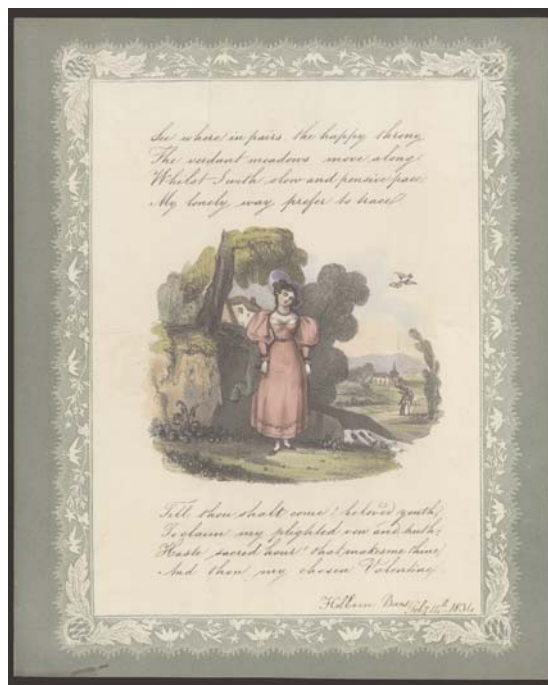 See where in pairs the happy throng
The verdant meadows move along
Whilst I with slow and pensive pace
My lonely way prefer to trace
Till thou shalt come! beloved youth,
To claim my plighted vow and truth,
Haste sacred hour! that makes me thine
And thou my chosen Valentine
Feby 14th